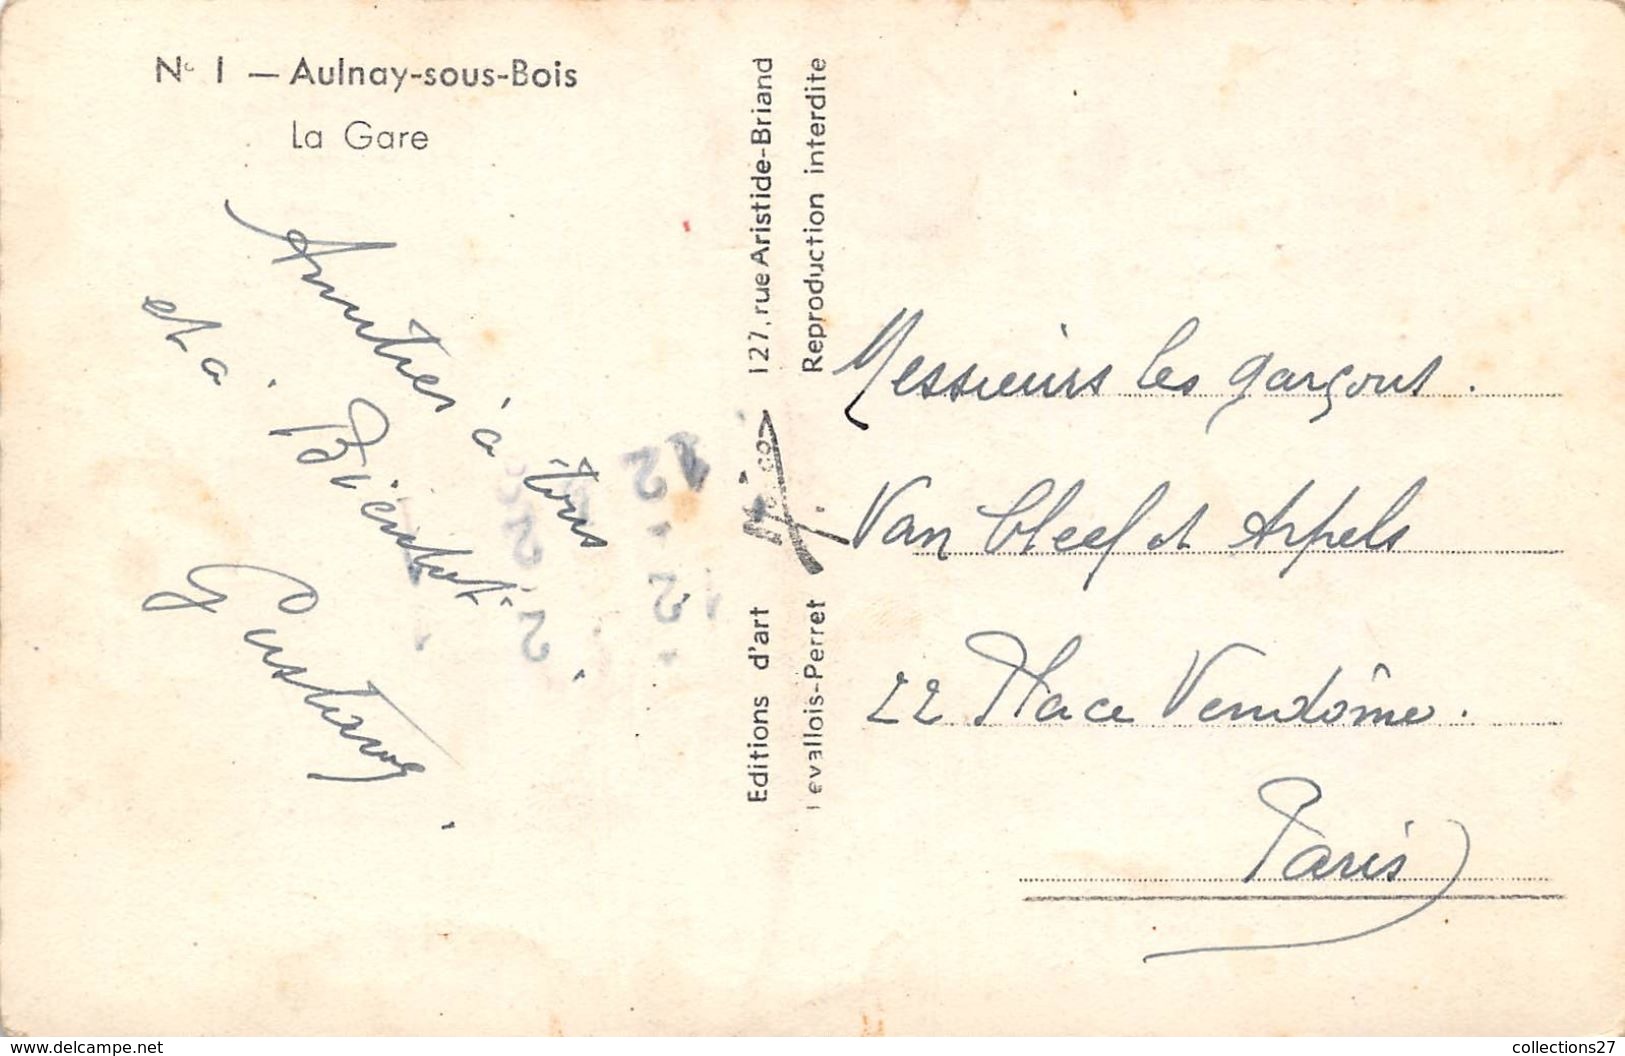 N° 1 — Aulnay-sous-Bois
La Gare
Amitiés à tous
et à Bientôt.
Gustave.
Editions d'art
127, rue Aristide-Briand
Levallois-Perret
Reproduction interdite
Messieurs les garçons.
Van Cleef et Arpels
22 Place Vendôme.
Paris
https://www.delcampe.net
collections27